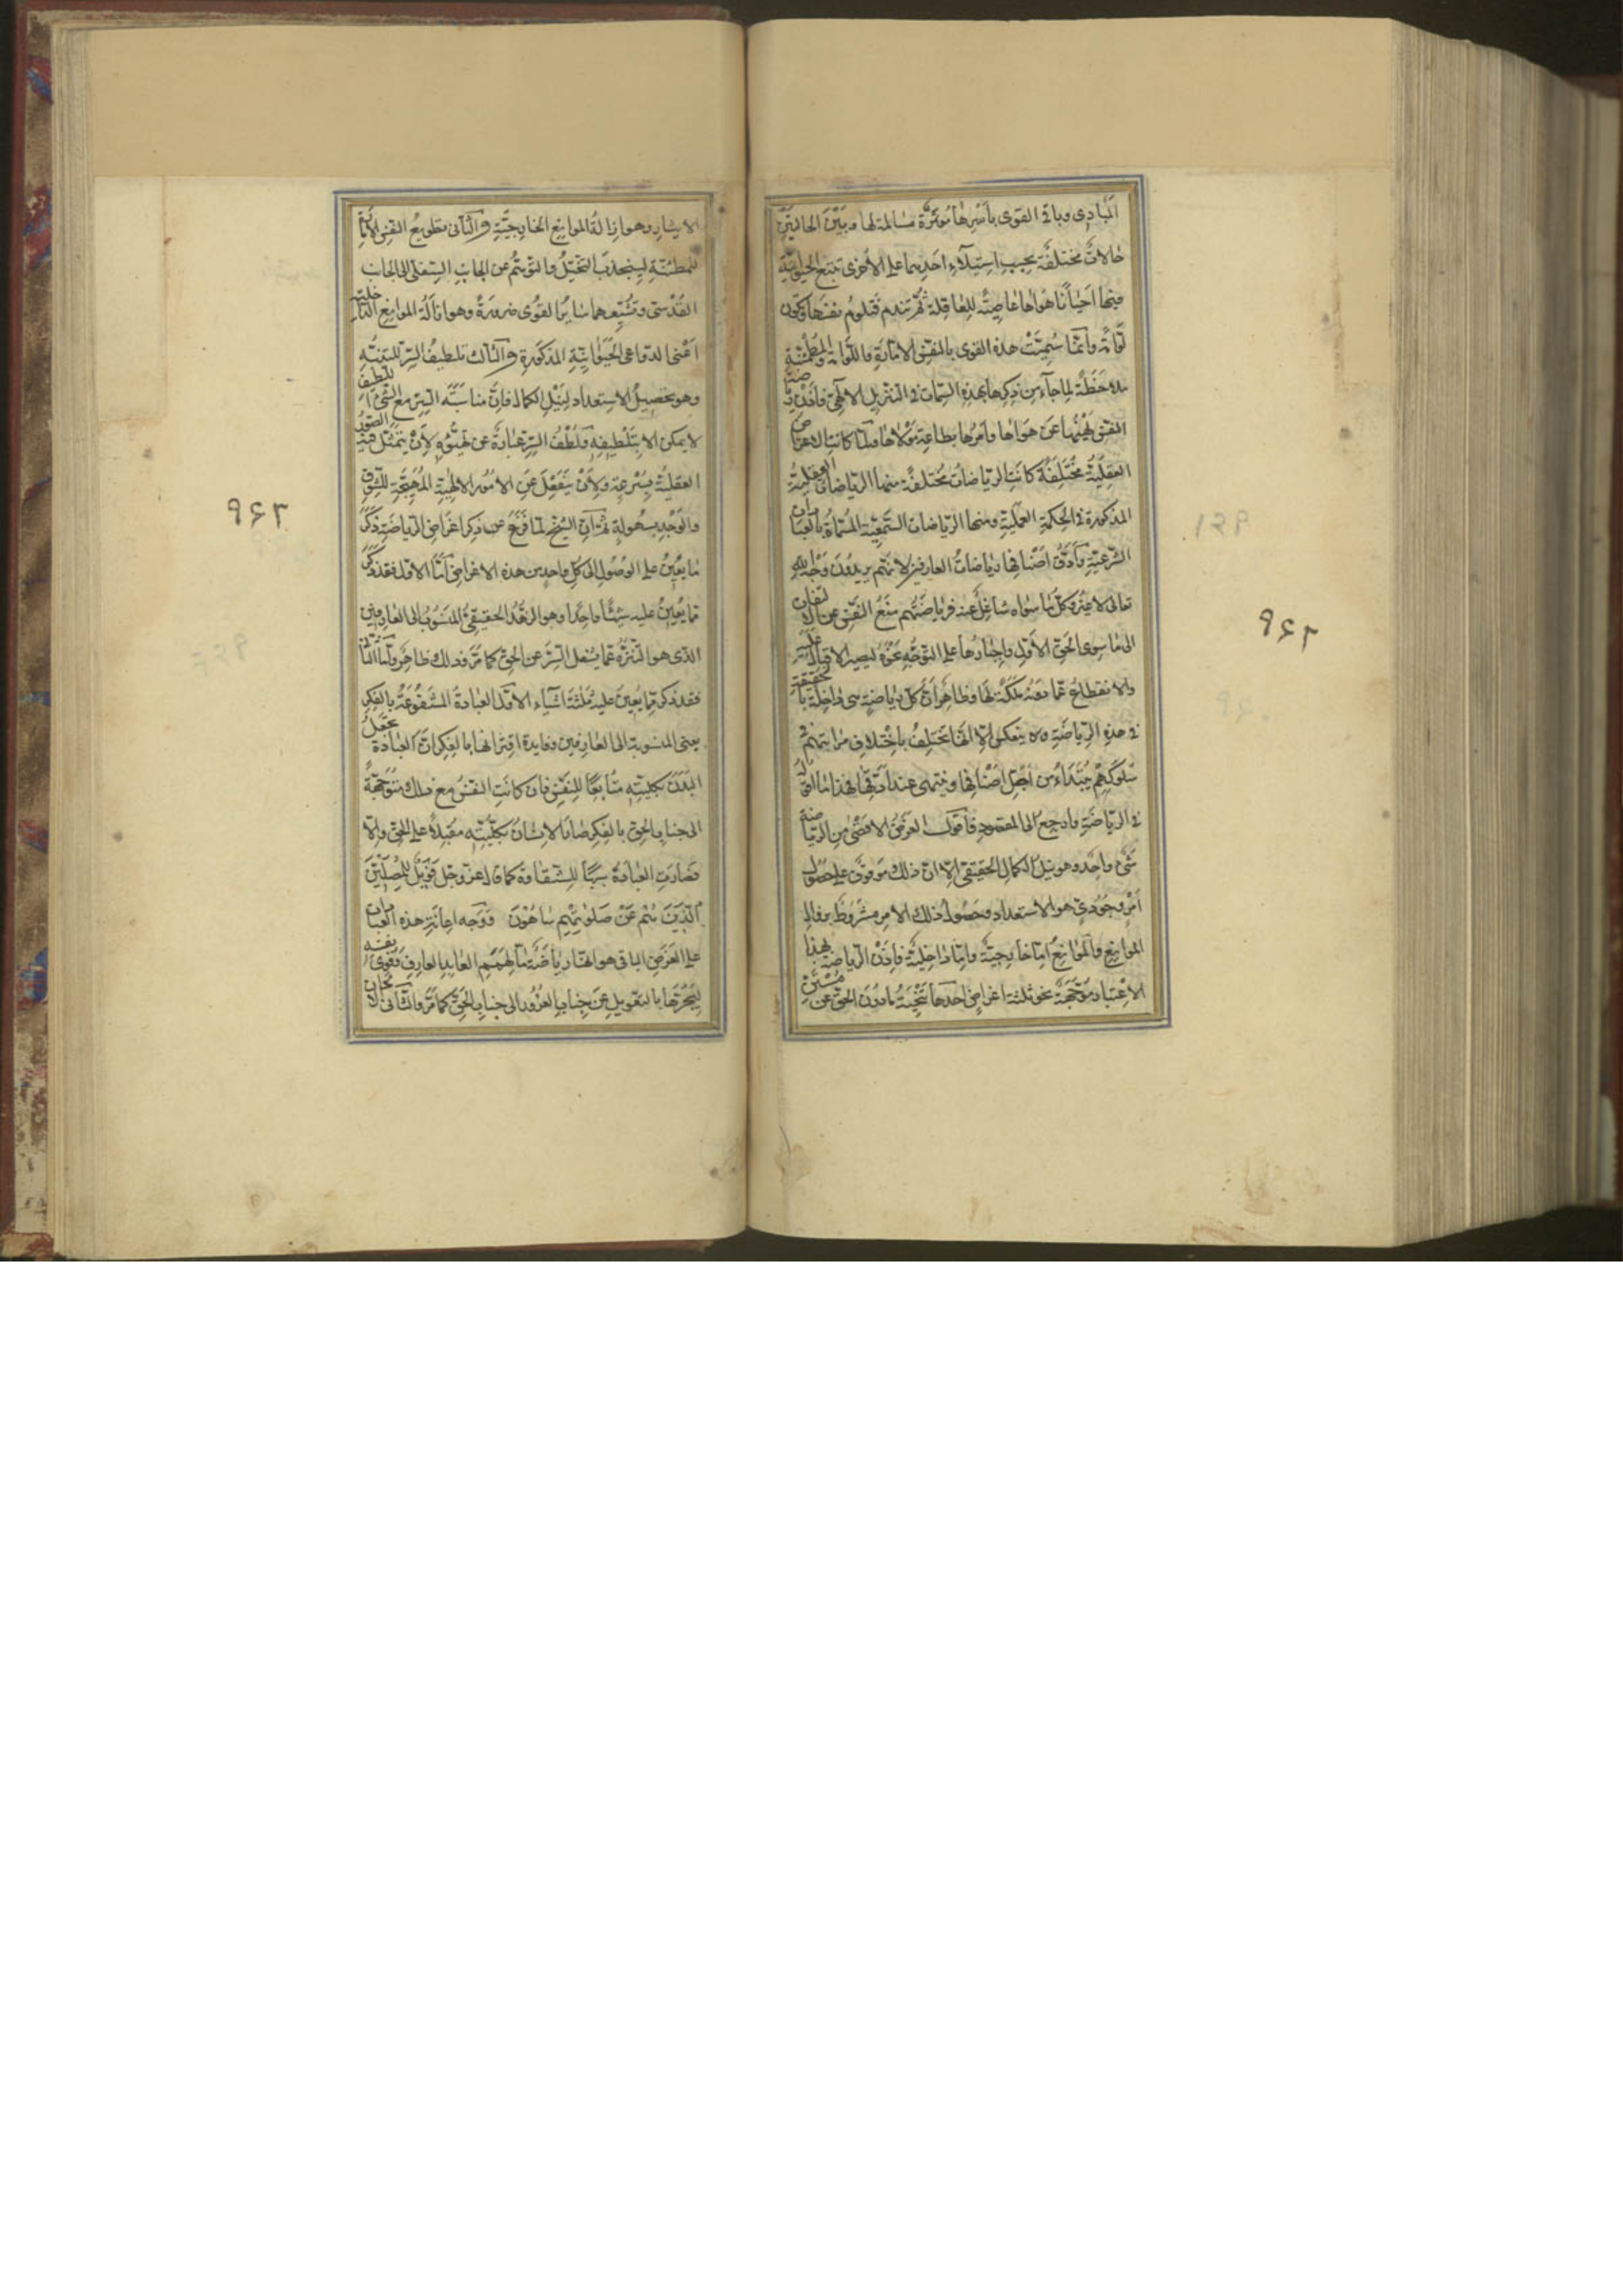 المبادى وباقى القوى بأسرها مؤتمرة مسالمة لها وبين الحالتين
حالات مختلفة بحسب استيلاء احديهما على الأخرى تتبع الحيوانية
فيها احيانا هواها عاصية للعاقلة ثم تندم فتلوم نفسها وتكون
لوامة وانما سميت هذه القوى بالنفس الامارة واللوامة والمطمئنة
ملاحظة لما جاء من ذكرها بهذه السمات فى التنزيل الالهى فاذن رياضة
النفس نهيها عن هواها وامرها بطاعة مولاها ولما كانت الاغراض
العقلية مختلفة كانت الرياضات مختلفة منها الرياضات العقلية
المذكورة فى الحكمة العملية ومنها الرياضات السمعية المسماة بالعبادات
الشرعية وأدق اصنافها رياضات العارفين لانهم يريدون وجه الله
تعالى لا غير وكل ما سواه شاغل عنه فرياضتهم منع النفس عن الالتفات
الى ما سوى الحق الأول واجبارها على التوجه نحوه ليصير الاقبال عليه
والانقطاع عما دونه ملكة لها وظاهر أن كل رياضة هى داخلة بالحقيقة
فى هذه الرياضة ولا ينعكس الا انها تختلف باختلاف مراتبهم فى
سلوكهم يبتداء من اجل اصنافها وينتهى عند أدقها فهذا ما اقوله
فى الرياضة وارجع الى المقصود فأقول الغرض الاقصى من الرياضة
شىء واحد وهو نيل الكمال الحقيقى الا ان ذلك موقوف على حصول
امر وجودى هو الاستعداد وحصول ذلك الامر مشروط بزوال
الموانع والموانع اما خارجية واما داخلية فاذن الرياضة بهذا
الاعتبار موجهة نحو ثلثة اغراض احدها تنحية ما دون الحق عن مستن
٩٦٢
الايثار وهو ازالة الموانع الخارجية والثانى تطويع النفس الامارة
للمطمئنة لينجذب التخيل والتوهم عن الجانب السفلى الى الجانب
القدسى وتشيعهما سائر القوى ضرورة وهو ازالة الموانع الداخلية
اعنى الدواعى الحيوانية المذكورة والثالث تلطيف السر للتنبه
وهو تحصيل الاستعداد لنيل الكمال فان مناسبة السر مع الشىء اللطيف
لا يمكن الا بتلطيفه ولطف السر عبارة عن تهيؤه لأن يتمثل فيه الصور
العقلية بسرعة ولأن ينفعل عن الامور الالهية المهيجة للشوق
والوجد بسهولة ثم ان الشيخ لما فرغ عن ذكر اغراض الرياضة ذكر
ما يعين على الوصول الى كل واحد من هذه الاغراض اما الاول فقد ذكر
مما يعين عليه شيئا واحدا وهو الزهد الحقيقى المنسوب الى العارفين
الذى هو التنزه عما يشغل السر عن الحق كما مر وذلك ظاهر واما الثانى
فقد ذكر مما يعين عليه ثلثة اشياء الاول العبادة المشفوعة بالفكر
يعنى المنسوبة الى العارفين وفايدة اقترانها بالفكر ان العبادة تجعل
البدن بكليته متابعا للنفس فان كانت النفس مع ذلك متوجهة
الى جناب الحق بالفكر صار الانسان بكليته مقبلا على الحق والا
فصارت العبادة سببا للشقاوة كما قال عز وجل فويل للمصلين
الذين هم عن صلوتهم ساهون ووجه اعانة هذه العبادة
على الغرض الباقى هو انها رياضة ما لهمم العابد العارف وقوى نفسه
ليجرها بالتعويد عن جناب الغرور الى جناب الحق كما مر والثانى الالحان
٩٦٣